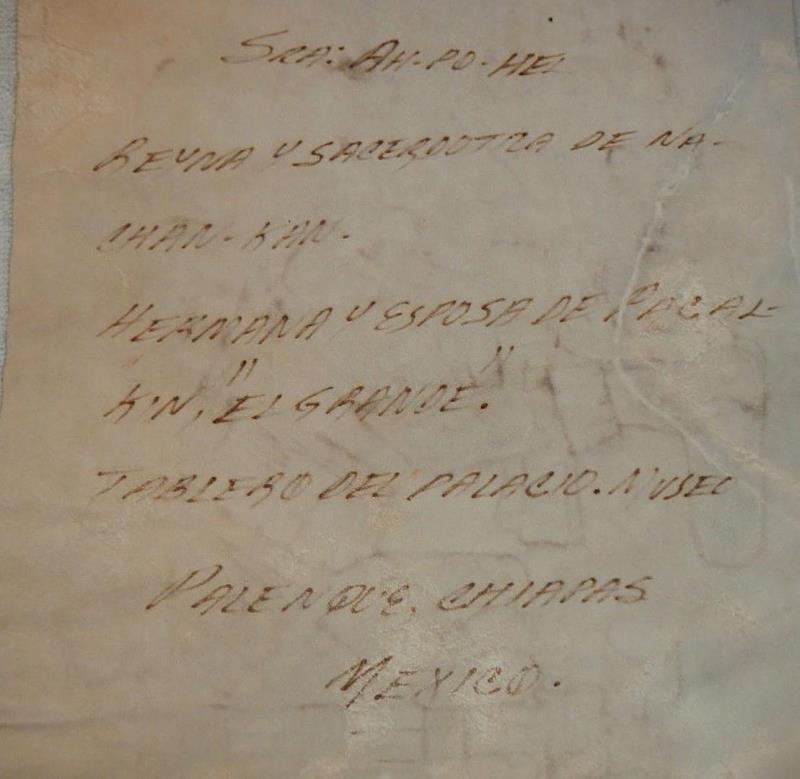 SRA: AH-PO-HEL
REYNA Y SACERDOTIZA DE NA-
CHAN-KAN.
HERMANA Y ESPOSA DE PACAL-
KIN, "EL GRANDE."
TABLERO DEL PALACIO. MUSEO
PALENQUE, CHIAPAS
MEXICO.